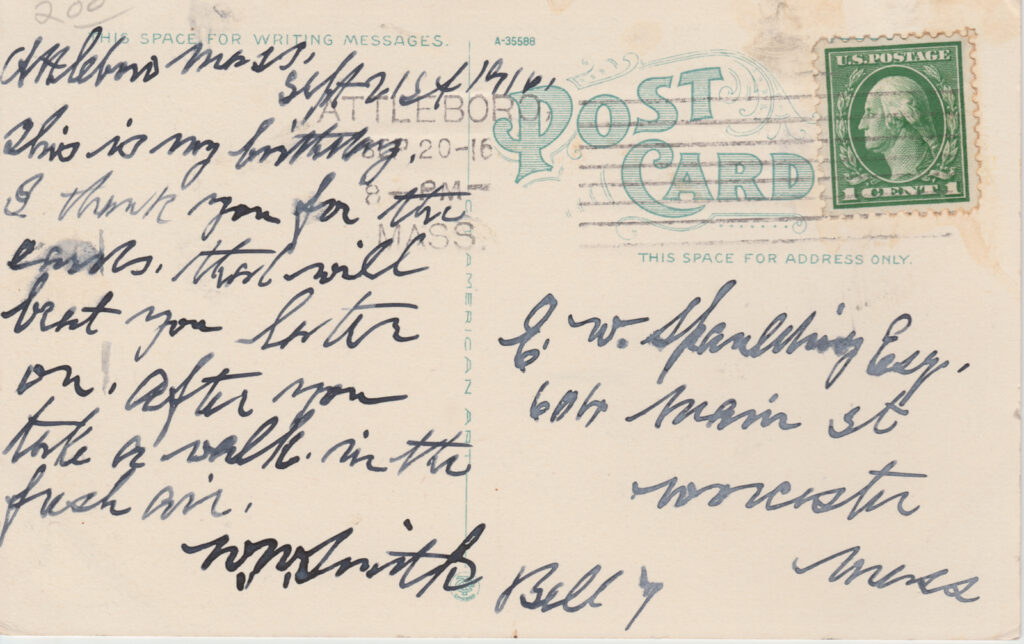 200
THIS SPACE FOR WRITING MESSAGES.
A-35588
Attleboro Mass.
Sept 21st 1916.
This is my birthday.
I thank you for the
cards. that will
beat you later
on. After you
take a walk in the
fresh air.
W.W. Smith
ATTLEBORO,
SEP 20-16
8 - PM -
MASS.
POST
CARD
U.S. POSTAGE
1 CENT 1
THIS SPACE FOR ADDRESS ONLY.
E. W. Spaulding Esq.
Main St
Worcester
Mass
Bell
AMERICAN ART